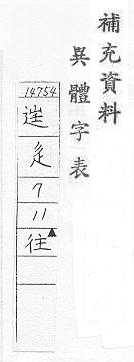 補充資料
異體字表
14754
𨓹
辵
7
11
往